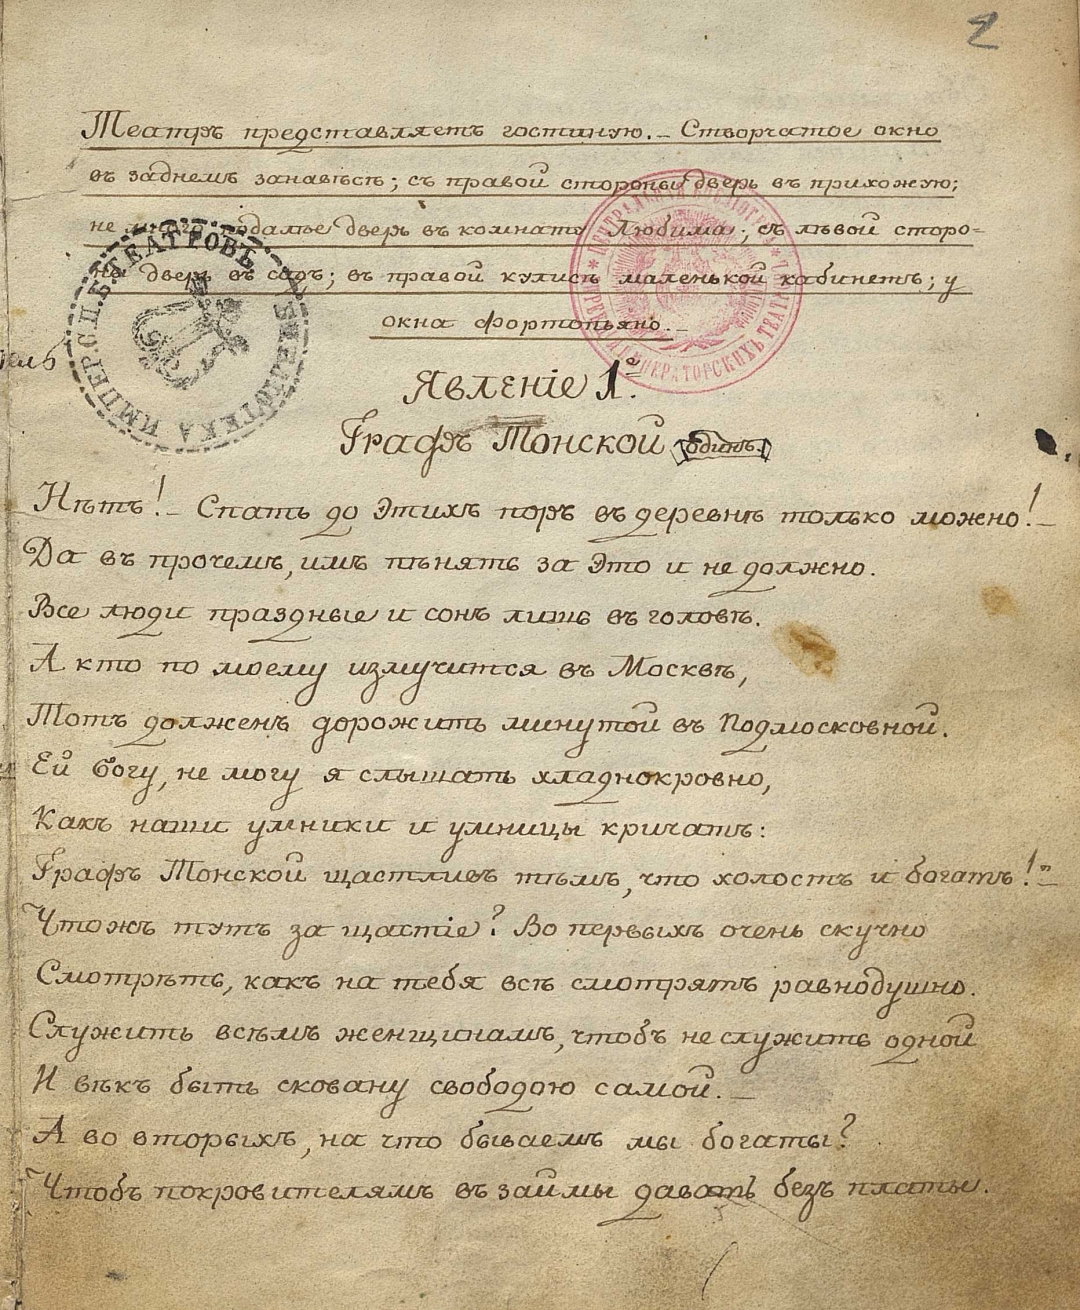 2
Театръ представляетъ гостиную. – Створчатое окно
въ заднемъ занавѣсѣ; съ правой стороны дверь въ прихожую;
не много подалѣе дверь въ комнату Любима; съ лѣвой сторо-
ны дверь въ садъ; въ правой кулисѣ маленькой кабинетъ; у
окна фортопьяно. –
Явленіе 1е.
Графъ Тонской одинъ.
Нѣтъ! – Спать до этихъ поръ въ деревнѣ только можно! –
Да въ прочемъ, имъ пѣнять за это и не должно.
Все люди праздные и сонъ лишь въ головѣ.
А кто по моему измучится въ Москвѣ,
Тотъ долженъ дорожить минутой въ Подмосковной.
Ей богу, не могу я слышать хладнокровно,
Какъ наши умники и умницы кричатъ:
Графъ Тонской щастливъ тѣмъ, что холостъ и богатъ! –
Чтожъ тутъ за щастіе? Во первыхъ очень скучно
Смотрѣть, какъ на тебя всѣ смотрятъ равнодушно.
Служить всѣмъ женщинамъ, чтобъ не служить одной
И вѣкъ быть сковану свободою самой. –
А во вторыхъ, на что бываемъ мы богаты?
Чтобъ покровителямъ въ займы давать безъ платы.
ИМПЕР. С.П.Б. ТЕАТРОВЪ БИБЛІОТЕКА
ЦЕНТРАЛЬНАЯ БИБЛІОТЕКА ИМПЕРАТОРСКИХЪ ТЕАТРОВЪ